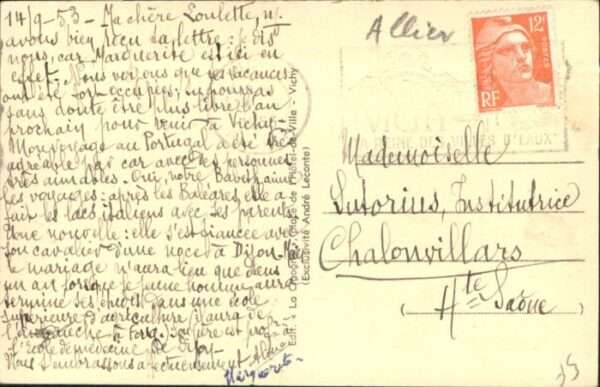 14/9-53 - Ma chère Loulette, n.
avons bien reçu ta lettre : je dis
nous, car Marguerite est ici en
effet. Nous voyons que tes vacances
ont été fort occupées ; tu pourras
sans doute être plus libre l'an
prochain pour venir à Vichy.
Mon voyage au Portugal a été très
agréable par car avec des personnes
très aimables. Oui, notre
les voyages : après les Baléares, elle a
fait les lacs italiens avec ses parents
Une nouvelle : elle s'est fiancée avec
son cavalier d'une noce à Dijon. Mais
le mariage n'aura lieu que dans
un an lorsque le jeune homme aura
terminé ses études dans une école
supérieure d'agriculture (il aura
à
l'école de médecine de Dijon
Nous t'embrassons affectueusement
Marguerite
Édit. « La Cigogne » Place de l'Hôtel-de-Ville - Vichy
(Exclusivité André Leconte)
Allier
12F
POSTES
RF
REINE DES VILLES D'EAUX"
Mademoiselle
Sutorius, Institutrice
Chalonvillars
(Hte Saône)